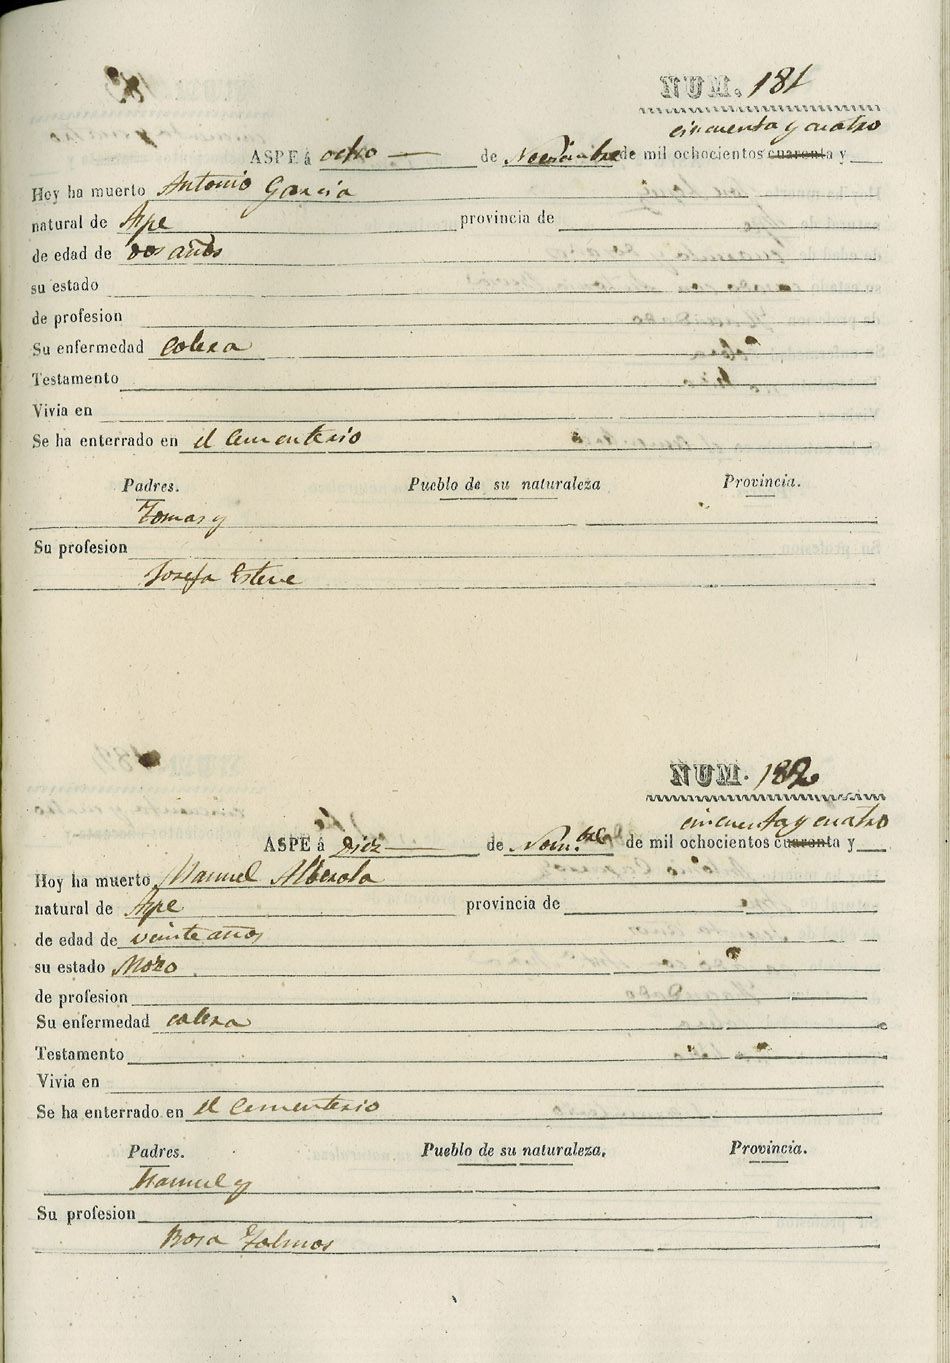 NUM. 181
cincuenta y cuatro
ASPE á ocho de Noviembre de mil ochocientos cuarenta y
Hoy ha muerto Antonio Garcia
natural de Aspe provincia de
de edad de dos años
su estado
de profesion
Su enfermedad colera
Testamento
Vivia en
Se ha enterrado en el cementerio
Padres. Pueblo de su naturaleza Provincia.
Tomas y
Su profesion
Josefa Esteve
NUM. 182
cincuenta y cuatro
ASPE á Diez de Nom.bre de mil ochocientos cuarenta y
Hoy ha muerto Manuel Alberola
natural de Aspe provincia de
de edad de veinte años
su estado Mozo.
de profesion
Su enfermedad colera
Testamento
Vivia en
Se ha enterrado en el Cementerio
Padres. Pueblo de su naturaleza. Provincia.
Manuel y
Su profesion
Rosa